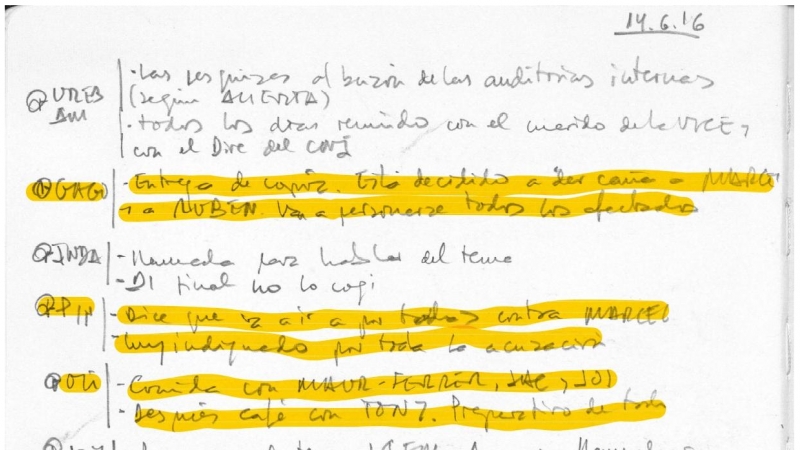 14.6.16
· Las pesquisas al buzón de las auditorías internas
(según ALIERTA)
· Todos los días reunido con el marido de la VICE y
con el Dire del CNI
GAGO - Entrega de copia. Está decidido a dar caña a MARCE
y a RUBEN. Van a personarse todos los afectados
INDA - Llamada para hablar del tema
- Al final no lo cogí
- Dice que va a ir a por todas contra MARCEL
- Muy indignado por toda la acusación
OLI - Comida con MAUR-FERRER, JAC, JOS
- Después café con TONI. Preparativo de todo